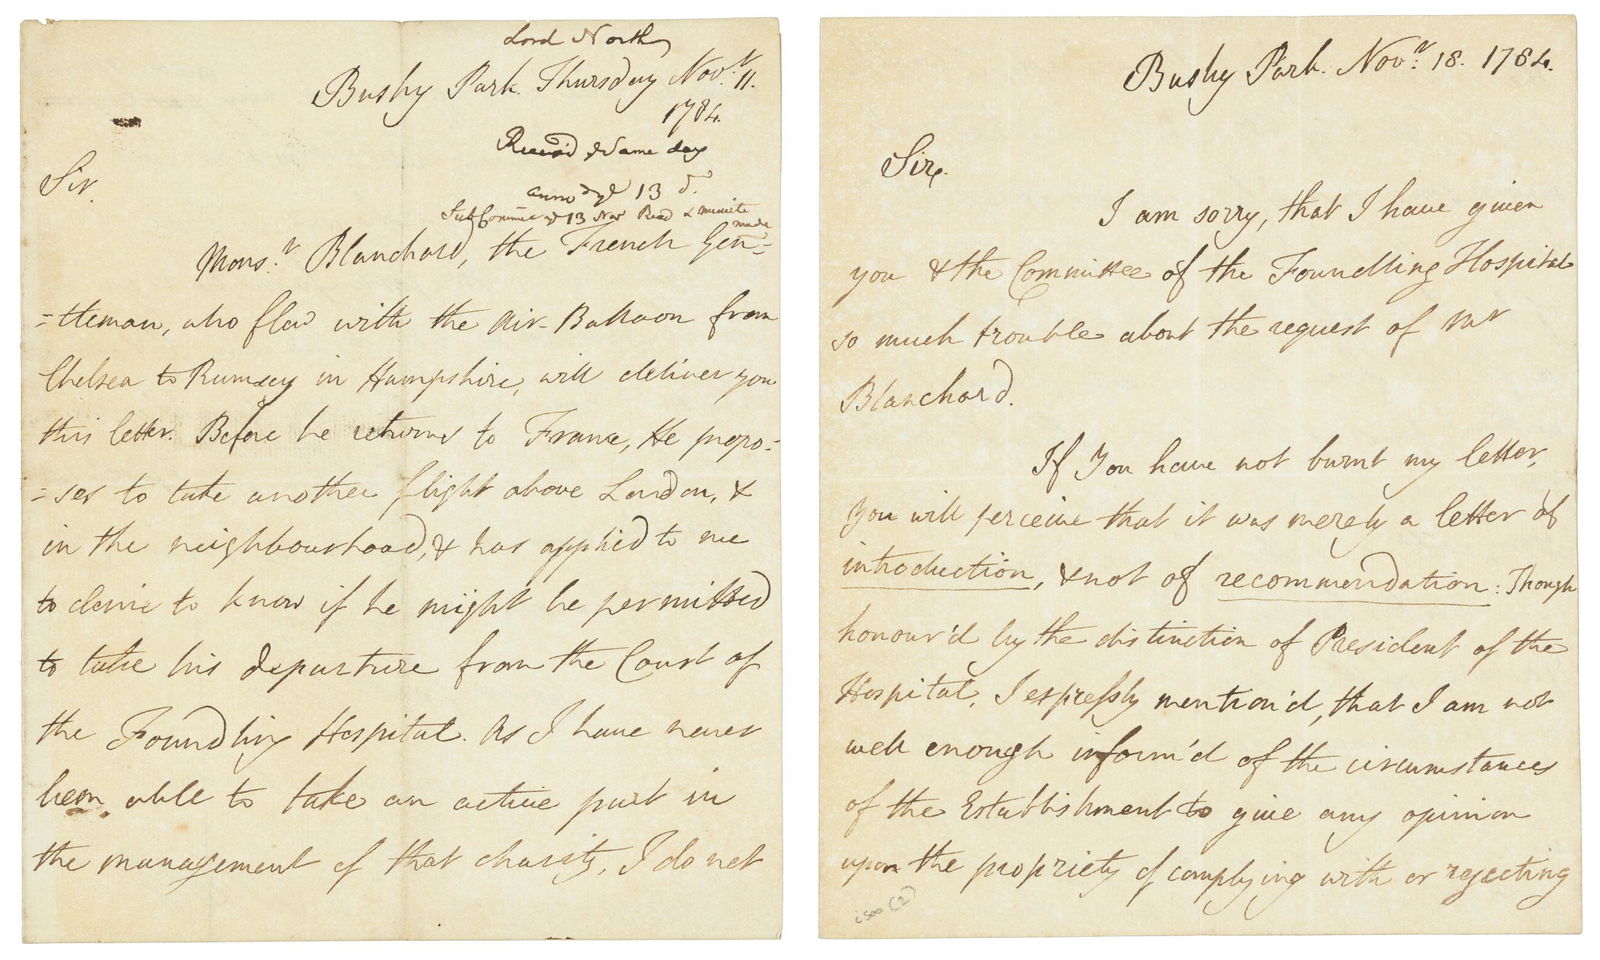 Lord North
Bushy Park. Thursday Nov.r 11.
1784.
Receiv'd Same day
13
Sub Committee 13 Nov Read & minute
made
Sir.
Mons.r Blanchard, the French Gen=
=tleman, who flew with the Air-Balloon from
Chelsea to Rumsey in Hampshire, will deliver you
this letter. Before he returns to France, He propo-
=ses to take another flight above London, &
in the neighbourhood, & has applied to me
to desire to know if he might be permitted
to take his departure from the Court of
the Foundling Hospital. As I have never
been able to take an active part in
the management of that charity, I do not
Bushy Park. Nov.r 18. 1784.
Sir,
I am sorry, that I have given
you & the Committee of the Foundling Hospital
so much trouble about the request of Mr
Blanchard.
If You have not burnt my letter,
You will perceive that it was merely a letter of
introduction, & not of recommendation: Though
honour'd by the distinction of President of the
Hospital, I expressly mention'd, that I am not
well enough inform'd of the circumstances
of the Establishment to give any opinion
upon the propriety of complying with or rejecting
(2)